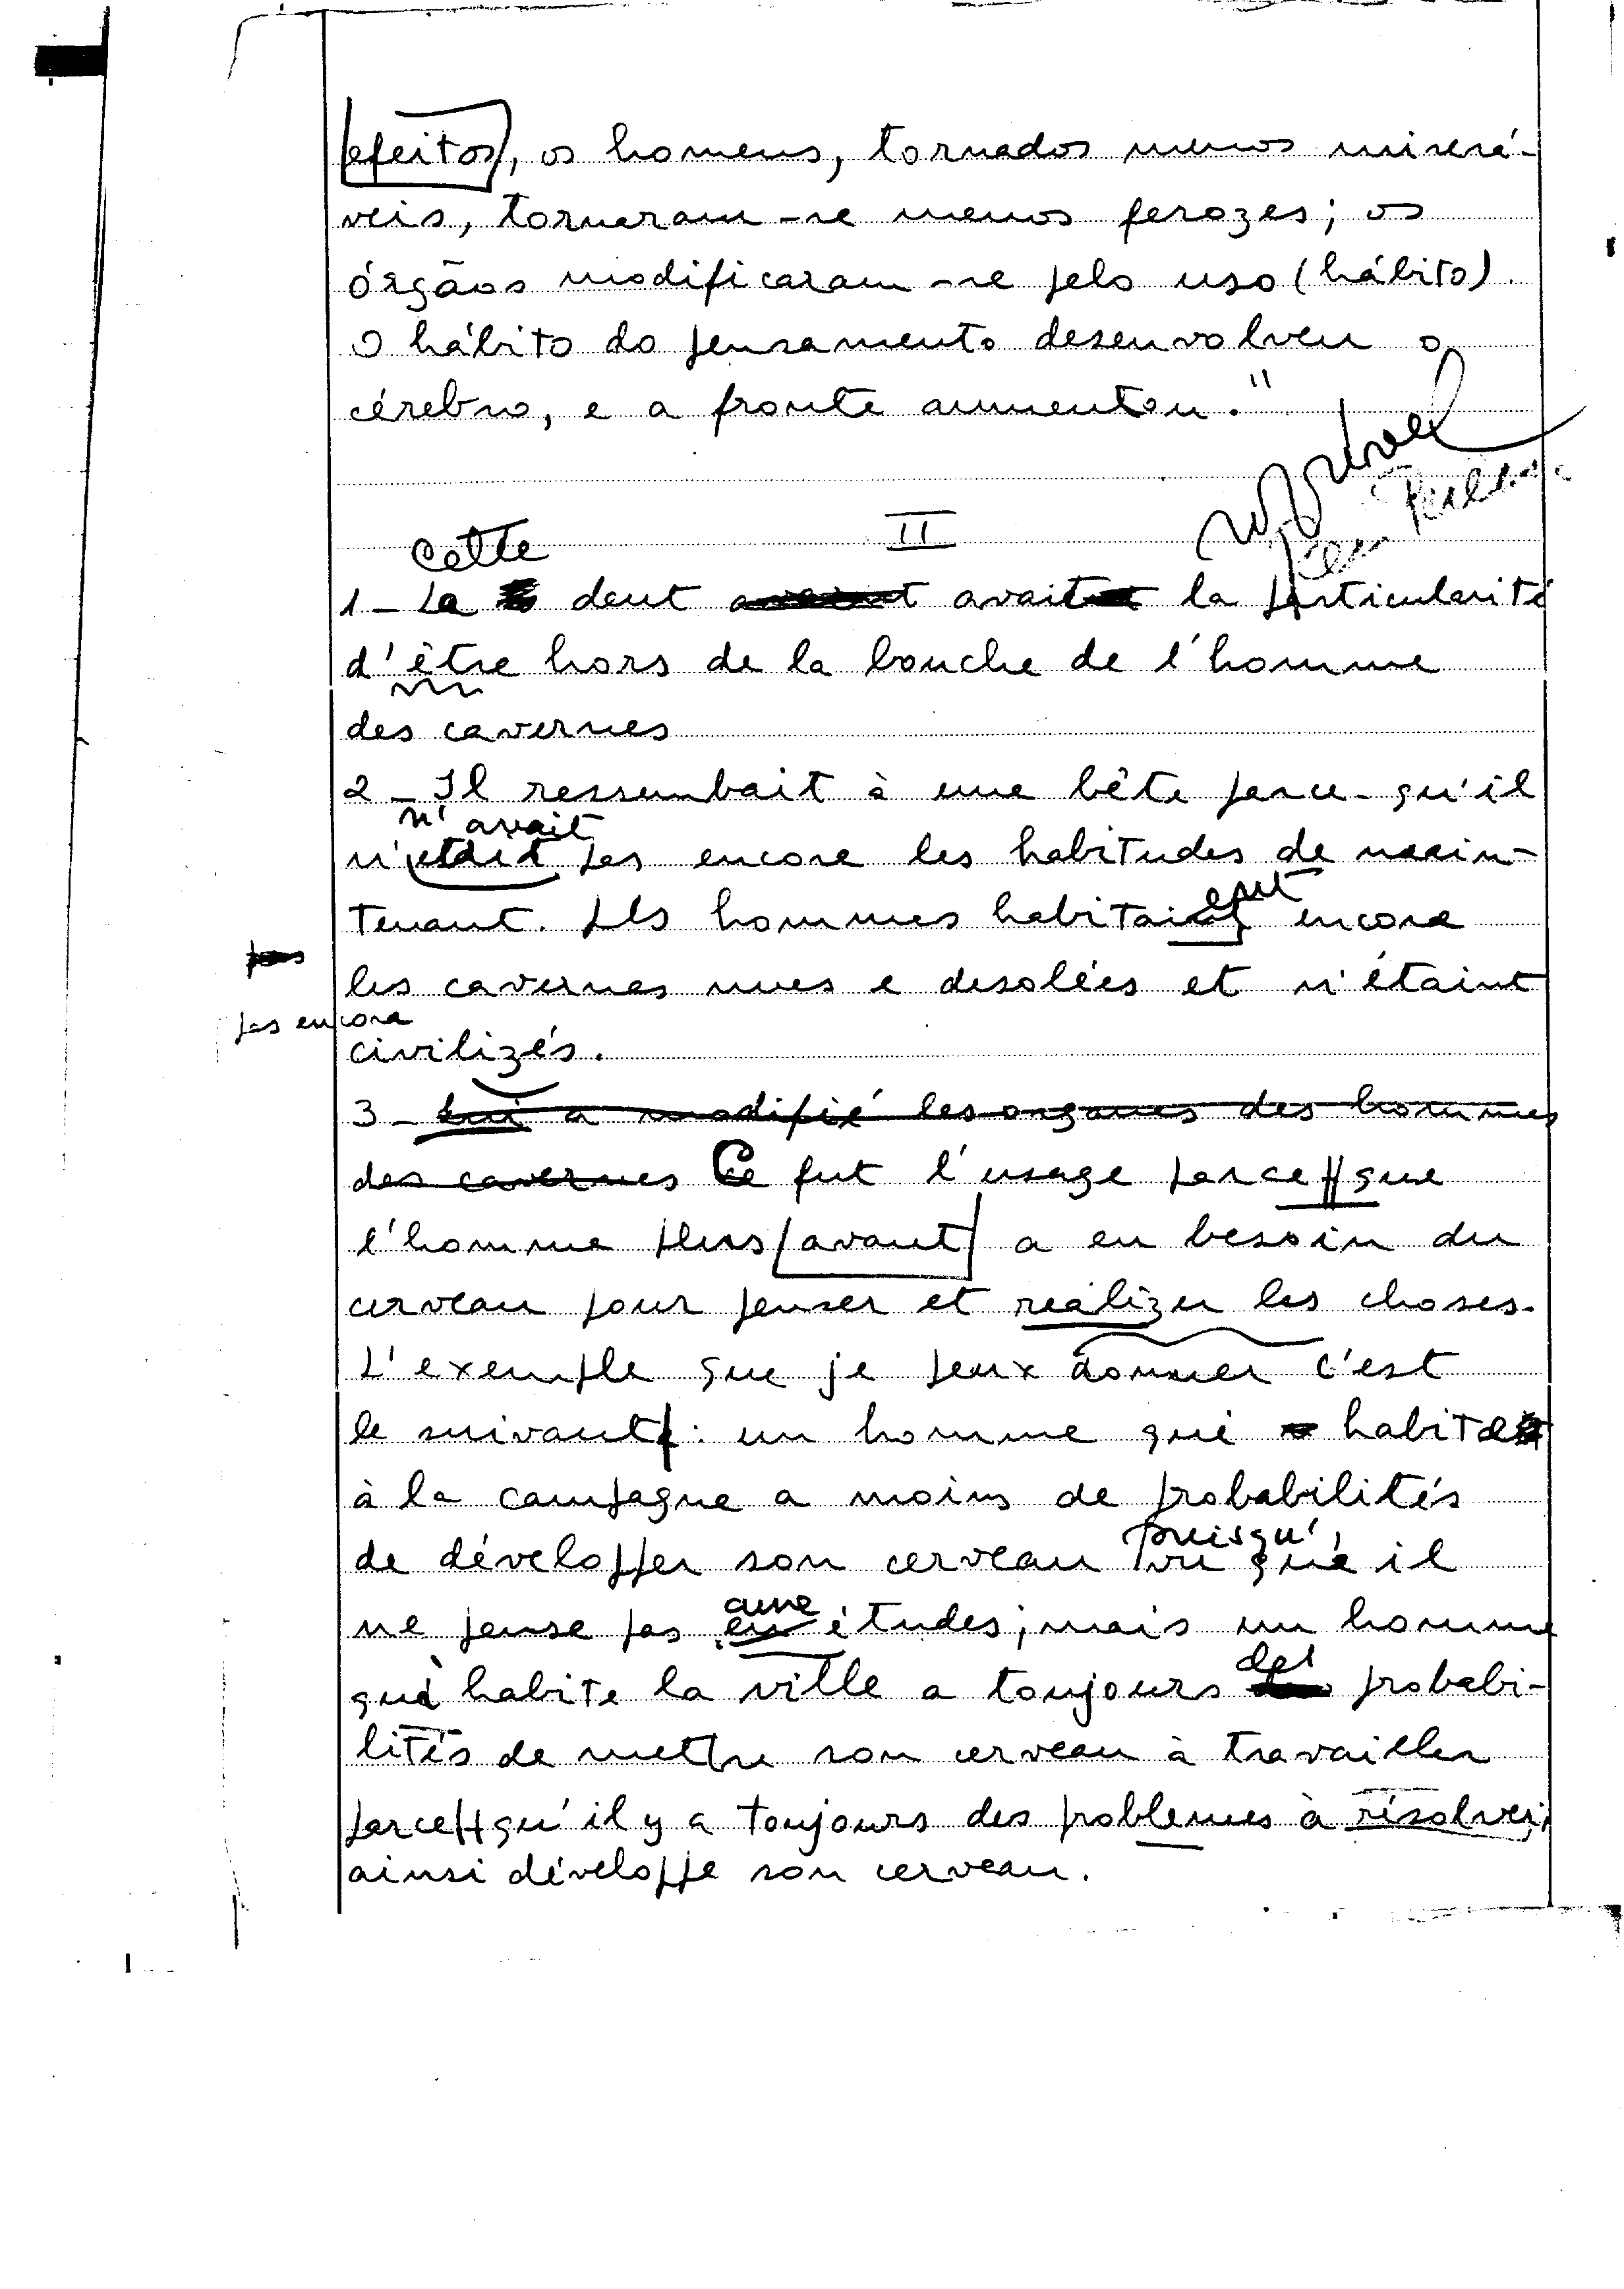 efeitos, os homens, tornados menos miserá-
veis, torneram-se menos ferozes; os
órgãos modificaram-se pelo uso (hábito).
O hábito do pensamento desenvolveu o
cérebro, e a fronte aumentou."
II
Cette
1 - La dent avait la particularité
d'être hors de la bouche de l'homme
des cavernes
2 - Il ressembait à une bête parce-qu'il
n'avait
n'etait pas encore les habitudes de main-
tenant. Les hommes habitaient encore
les cavernes nues e desolées et n'étaint
pas encora
civilizés.
3 - Lui a modifié les organes des hommes
des cavernes Ce fut l'usage parce que
l'homme plus avant a eu besoin du
cerveau pour penser et realizer les choses.
L'exemple que je peux donner c'est
le suivant: un homme qui habite
à la campagne a moins de probabilités
puisqu'
de développer son cerveau vu que il
aux
ne pense pas en études; mais un homme
qui habite la ville a toujours des probabi-
lités de mettre son cerveau à travailler
parce qu'il y a toujours des problemes à résolver;
ainsi développe son cerveau.